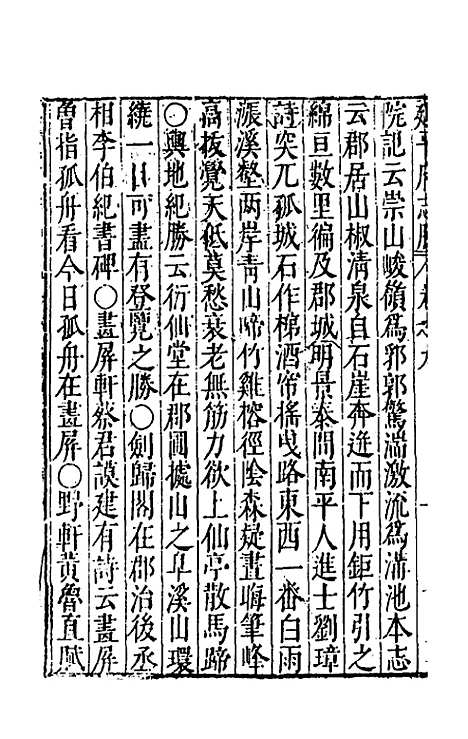 延平府志勝 卷之九
院記云崇山峻嶺為郛郭驚湍激流為溝池本志
云郡居山椒清泉自石崖奔迸而下用鉅竹引之
綿亘數里徧及郡城明景泰間南平人進士劉璋
詩突兀孤城石作梯酒帘搖曵路東西一番白雨
漲溪壑兩岸青山啼竹雞榕徑陰森疑晝晦筆峰
高拔覺天低莫愁衰老無筋力欲上仙亭散馬蹄
○輿地紀勝云衍仙堂在郡圃據山之阜溪山環
繞一目可盡有登覽之勝○劍歸閣在郡治後丞
相李伯紀書碑○畫屏軒蔡君謨建有詩云畫屏
曾指孤舟看今日孤舟在畫屏○野軒黃魯直賦